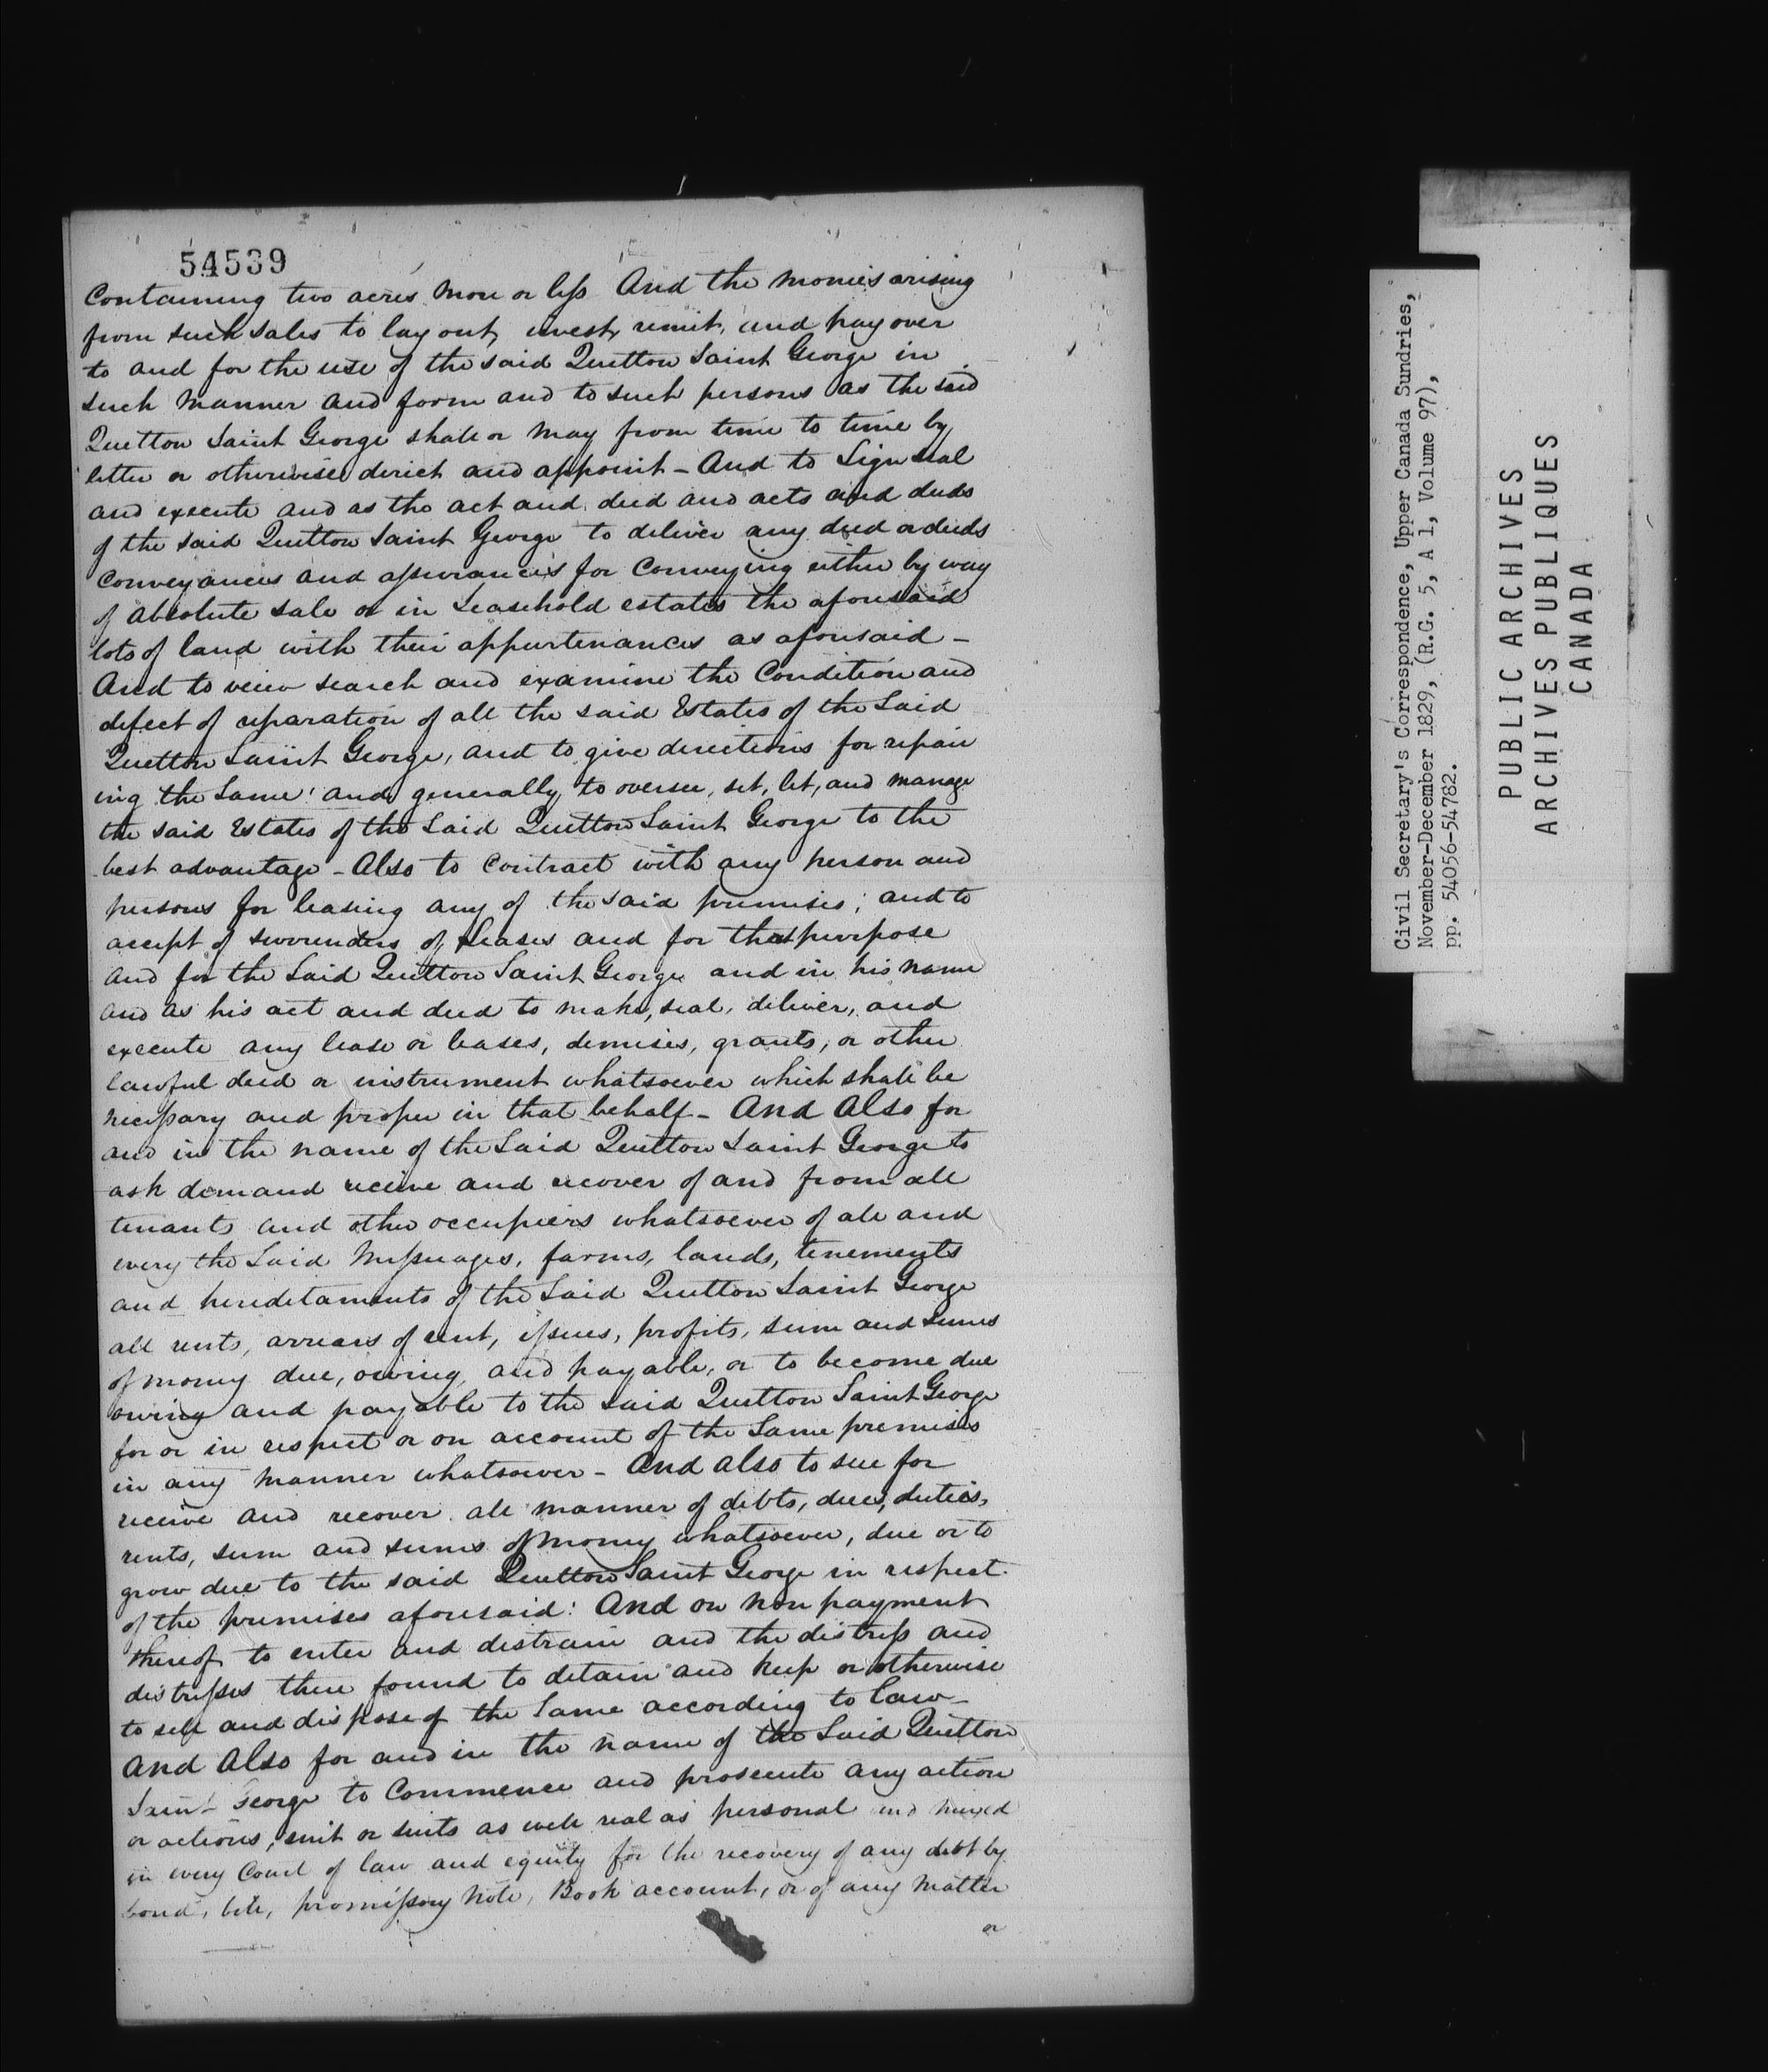 54539
Containing two acres more or less And the monies arising
from such sales to lay out, invest, remit, and pay over
to and for the use of the said Quetton Saint George in
such manner and form and to such persons as the said
Quetton Saint George shall or may from time to time by
letter or otherwise direct and appoint - And to Sign seal
and execute and as the act and deed and acts and deeds
of the said Quetton Saint George to deliver any deed or deeds
Conveyances and assurances for Conveying either by way
of absolute sale or in Leasehold estates the aforesaid
lots of land with their appurtenances as aforesaid -
And to veiw search and examine the Condition and
defect of reparation of all the said Estates of the Said
Quetton Saint George, and to give directions for repair
ing the Same: and generally to oversee, set, let, and manage
the said Estates of the Said Quetton Saint George to the
best advantage - Also to Contract with any person and
persons for leasing any of the said premises; and to
accept of surrenders of Leases and for that purpose
and for the Said Quetton Saint George and in his name
and as his act and deed to make, seal, deliver, and
execute any lease or leases, demises, grants, or other
lawful deed or instrument whatsoever which shall be
necessary and proper in that behalf - And Also for
and in the name of the Said Quetton Saint George to
ask demand receive and recover of and from all
tenants and other occupiers whatsoever of all and
every the Said Messuages, farms, lands, tenements
and hereditaments of the Said Quetton Saint George
all rents, arrears of rent, issues, profits, sum and sums
of money due, owing, and payable, or to become due
owing and payable to the said Quetton Saint George
for or in respect or on account of the Same premises
in any manner whatsoever - And Also to sue for
receive and recover all manner of debts, dues, duties,
rents, sum and sums of money whatsoever, due or to
grow due to the said Quetton Saint George in respect
of the premises aforesaid: And on Non payment
thereof to enter and distrain and the distress and
distresses there found to detain and keep or otherwise
to sell and dispose of the Same according to law -
And Also for and in the name of the Said Quetton
Saint George to Commence and prosecute any action
or actions, suit or suits as well real as personal and mixed
in every Court of law and equity for the recovery of any debt by
bond, bill, promissory Note, Book account, or of any Matter
or
Civil Secretary's Correspondence, Upper Canada Sundries,
November-December 1829, (R.G. 5, A 1, Volume 97),
pp. 54056-54782.
PUBLIC ARCHIVES
ARCHIVES PUBLIQUES
CANADA